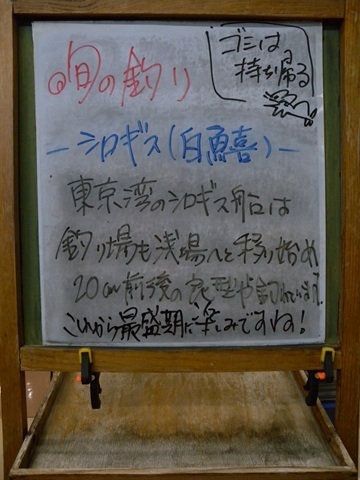 旬の釣り
ゴミは、
持ち帰る
―シロギス(白鱚)―
東京湾のシロギス船は
釣り場も浅場へと移り始め
20cm前後の良型が釣れています。
これから最盛期に楽しみですね!